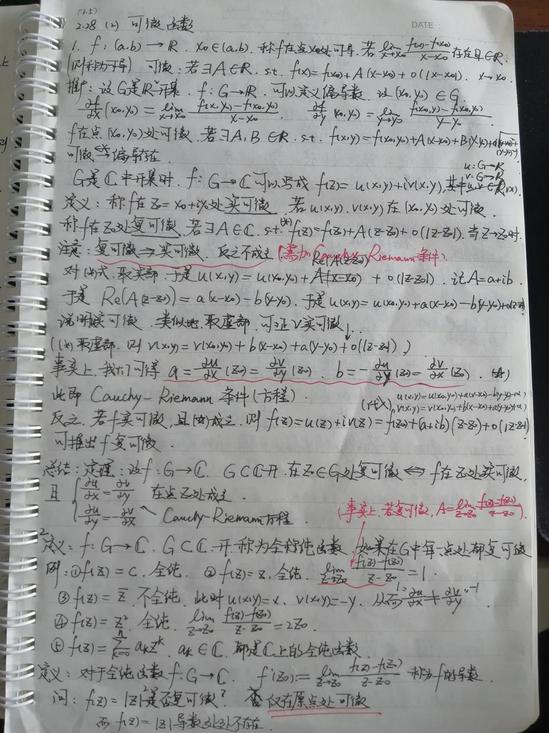 2.28 (2) 可微函数
DATE
1. f:(a,b)→R. x₀∈(a,b), 称f在点x₀处可导, 若 lim_{x→x₀} (f(x)-f(x₀))/(x-x₀) 存在且∈R.
可微: 若∃A∈R. s.t. f(x)=f(x₀)+A(x-x₀)+o(|x-x₀|). x→x₀.
推广: 设G是R²开集. f:G→R. 可以定义偏导数. 设(x₀,y₀)∈G.
∂f/∂x(x₀,y₀)=lim_{x→x₀} (f(x,y₀)-f(x₀,y₀))/(x-x₀) ∂f/∂y(x₀,y₀)=lim_{y→y₀} (f(x₀,y)-f(x₀,y₀))/(y-y₀)
f在点(x₀,y₀)处可微. 若∃A,B∈R. s.t. f(x,y)=f(x₀,y₀)+A(x-x₀)+B(y-y₀)
可微 偏导存在
u:G→R
v:G→R
G是C中开集时. f:G→C可以写成 f(z)=u(x,y)+iv(x,y), 其中u,v
定义: 称f在z₀=x₀+iy₀处实可微 若u(x,y),v(x,y)在(x₀,y₀)处可微.
称f在z₀处复可微. 若∃A∈C. s.t. f(z)=f(z₀)+A(z-z₀)+o(|z-z₀|). 当z→z₀时.
注意: 复可微⇒实可微, 反之不成立 (需加Cauchy-Riemann条件)
取实部. 于是u(x,y)=u(x₀,y₀)+ +o(|z-z₀|). 记A=a+ib.
于是 Re(A(z-z₀))=a(x-x₀)-b(y-y₀). 于是u(x,y)=u(x₀,y₀)+a(x-x₀)-b(y-y₀)
说明u实可微. 类似地取虚部. 可证v实可微.
取虚部. 则v(x,y)=v(x₀,y₀)+b(x-x₀)+a(y-y₀)+o(|z-z₀|)
事实上, 我们可得 a=∂u/∂x(z₀)=∂v/∂y(z₀). b=-∂u/∂y(z₀)=∂v/∂x(z₀).
此即 Cauchy-Riemann 条件(方程)
反之, 若f实可微. 且 成立. 则f(z)=u(z)+iv(z)=f(z₀)+(a+ib)(z-z₀)+o(|z-z₀|)
可推出f复可微.
总结: 定理: 设f:G→C. G⊂C开. 在z₀∈G处复可微⇔f在z₀处实可微,
且 { ∂u/∂x=∂v/∂y
∂u/∂y=-∂v/∂x 在点z₀处成立.
Cauchy-Riemann方程
(事实上, 若复可微, A=lim_{z→z₀} (f(z)-f(z₀))/(z-z₀))
2. 定义: f:G→C. G⊂C.开. 称为全纯函数, 如果在G中每一点处都复可微
例: ①f(z)=c. 全纯. ②f(z)=z. 全纯. lim_{z→z₀} (f(z)-f(z₀))/(z-z₀)=1.
③ f(z)=z̄. 不全纯. 此时u(x,y)=x. v(x,y)=-y. 从而1=∂u/∂x≠∂v/∂y=-1
④ f(z)=z². 全纯. lim_{z→z₀} (f(z)-f(z₀))/(z-z₀)=2z₀.
⑤ f(z)=Σ_{k=0}^{n} aₖzᵏ. aₖ∈C. 都是C上的全纯函数.
定义: 对于全纯函数f:G→C. f'(z₀):=lim_{z→z₀} (f(z)-f(z₀))/(z-z₀) 称为f的导数.
问: f(z)=|z|²是否复可微? 否 仅在原点处可微
而f(z)=|z|导数处处不存在.